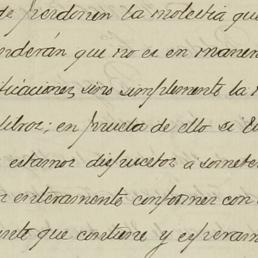 de perdonen la molestia que
nderán que no es en maner
ificaciones, sino simplemente la
libros; en prueba de ello si
estamos dispuestos a someter
enteramente conformes con
ento que contiene y esperam